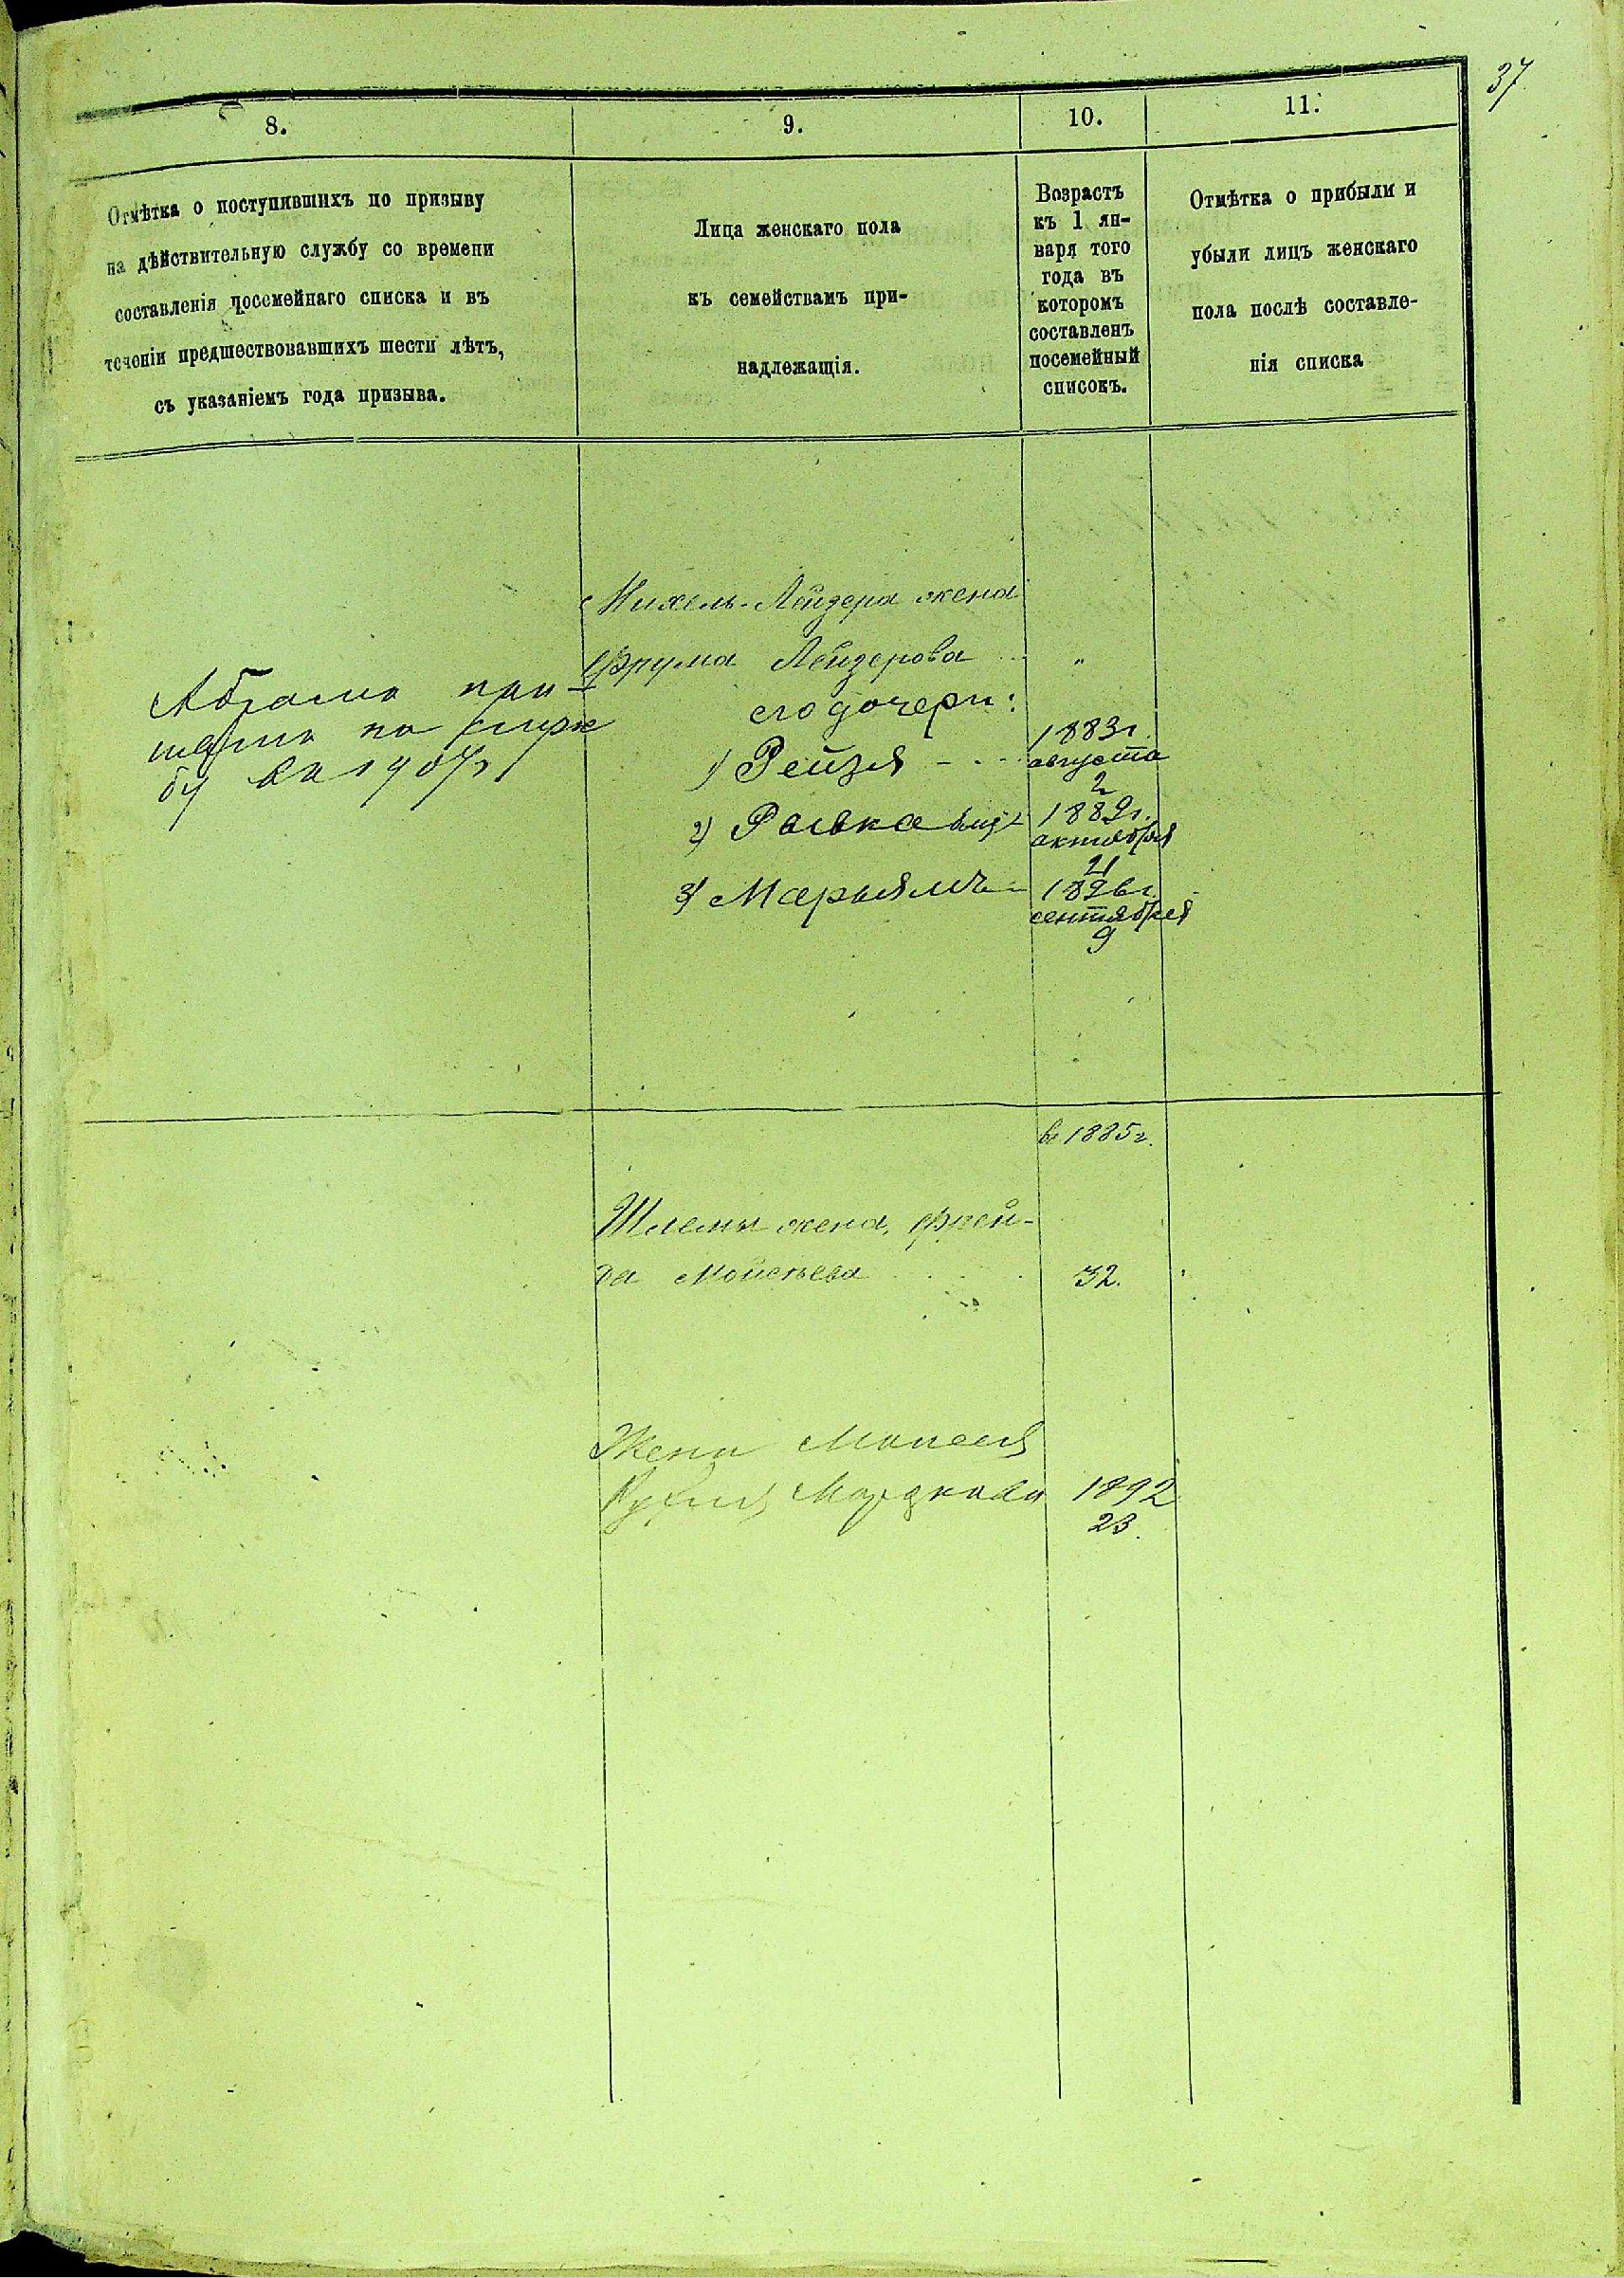 37
8.
9.
10.
11.
Отмѣтка о поступившихъ по призыву
на дѣйствительную службу со времени
составленія посемейнаго списка и въ
теченіи предшествовавшихъ шести лѣтъ,
съ указаніемъ года призыва.
Лица женскаго пола
къ семействамъ при-
надлежащія.
Возрастъ
къ 1 ян-
варя того
года въ
которомъ
составленъ
посемейный
списокъ.
Отмѣтка о прибыли и
убыли лицъ женскаго
пола послѣ составле-
нія списка
Абрамъ при-
нятъ на служ
бу въ 1907г
Михель-Лейзера жена
Фрума Лейзерова "
его дочери:
1) Рейзя 1883г.
августа
2
2) Рывка 1889г.
октября
21
3) Марьямъ 1896г.
сентября
9
въ 1885г.
Шлемы жена, Фрей-
да Мойсеева 32.
Жена Моисея
Мордкова 1892
23.